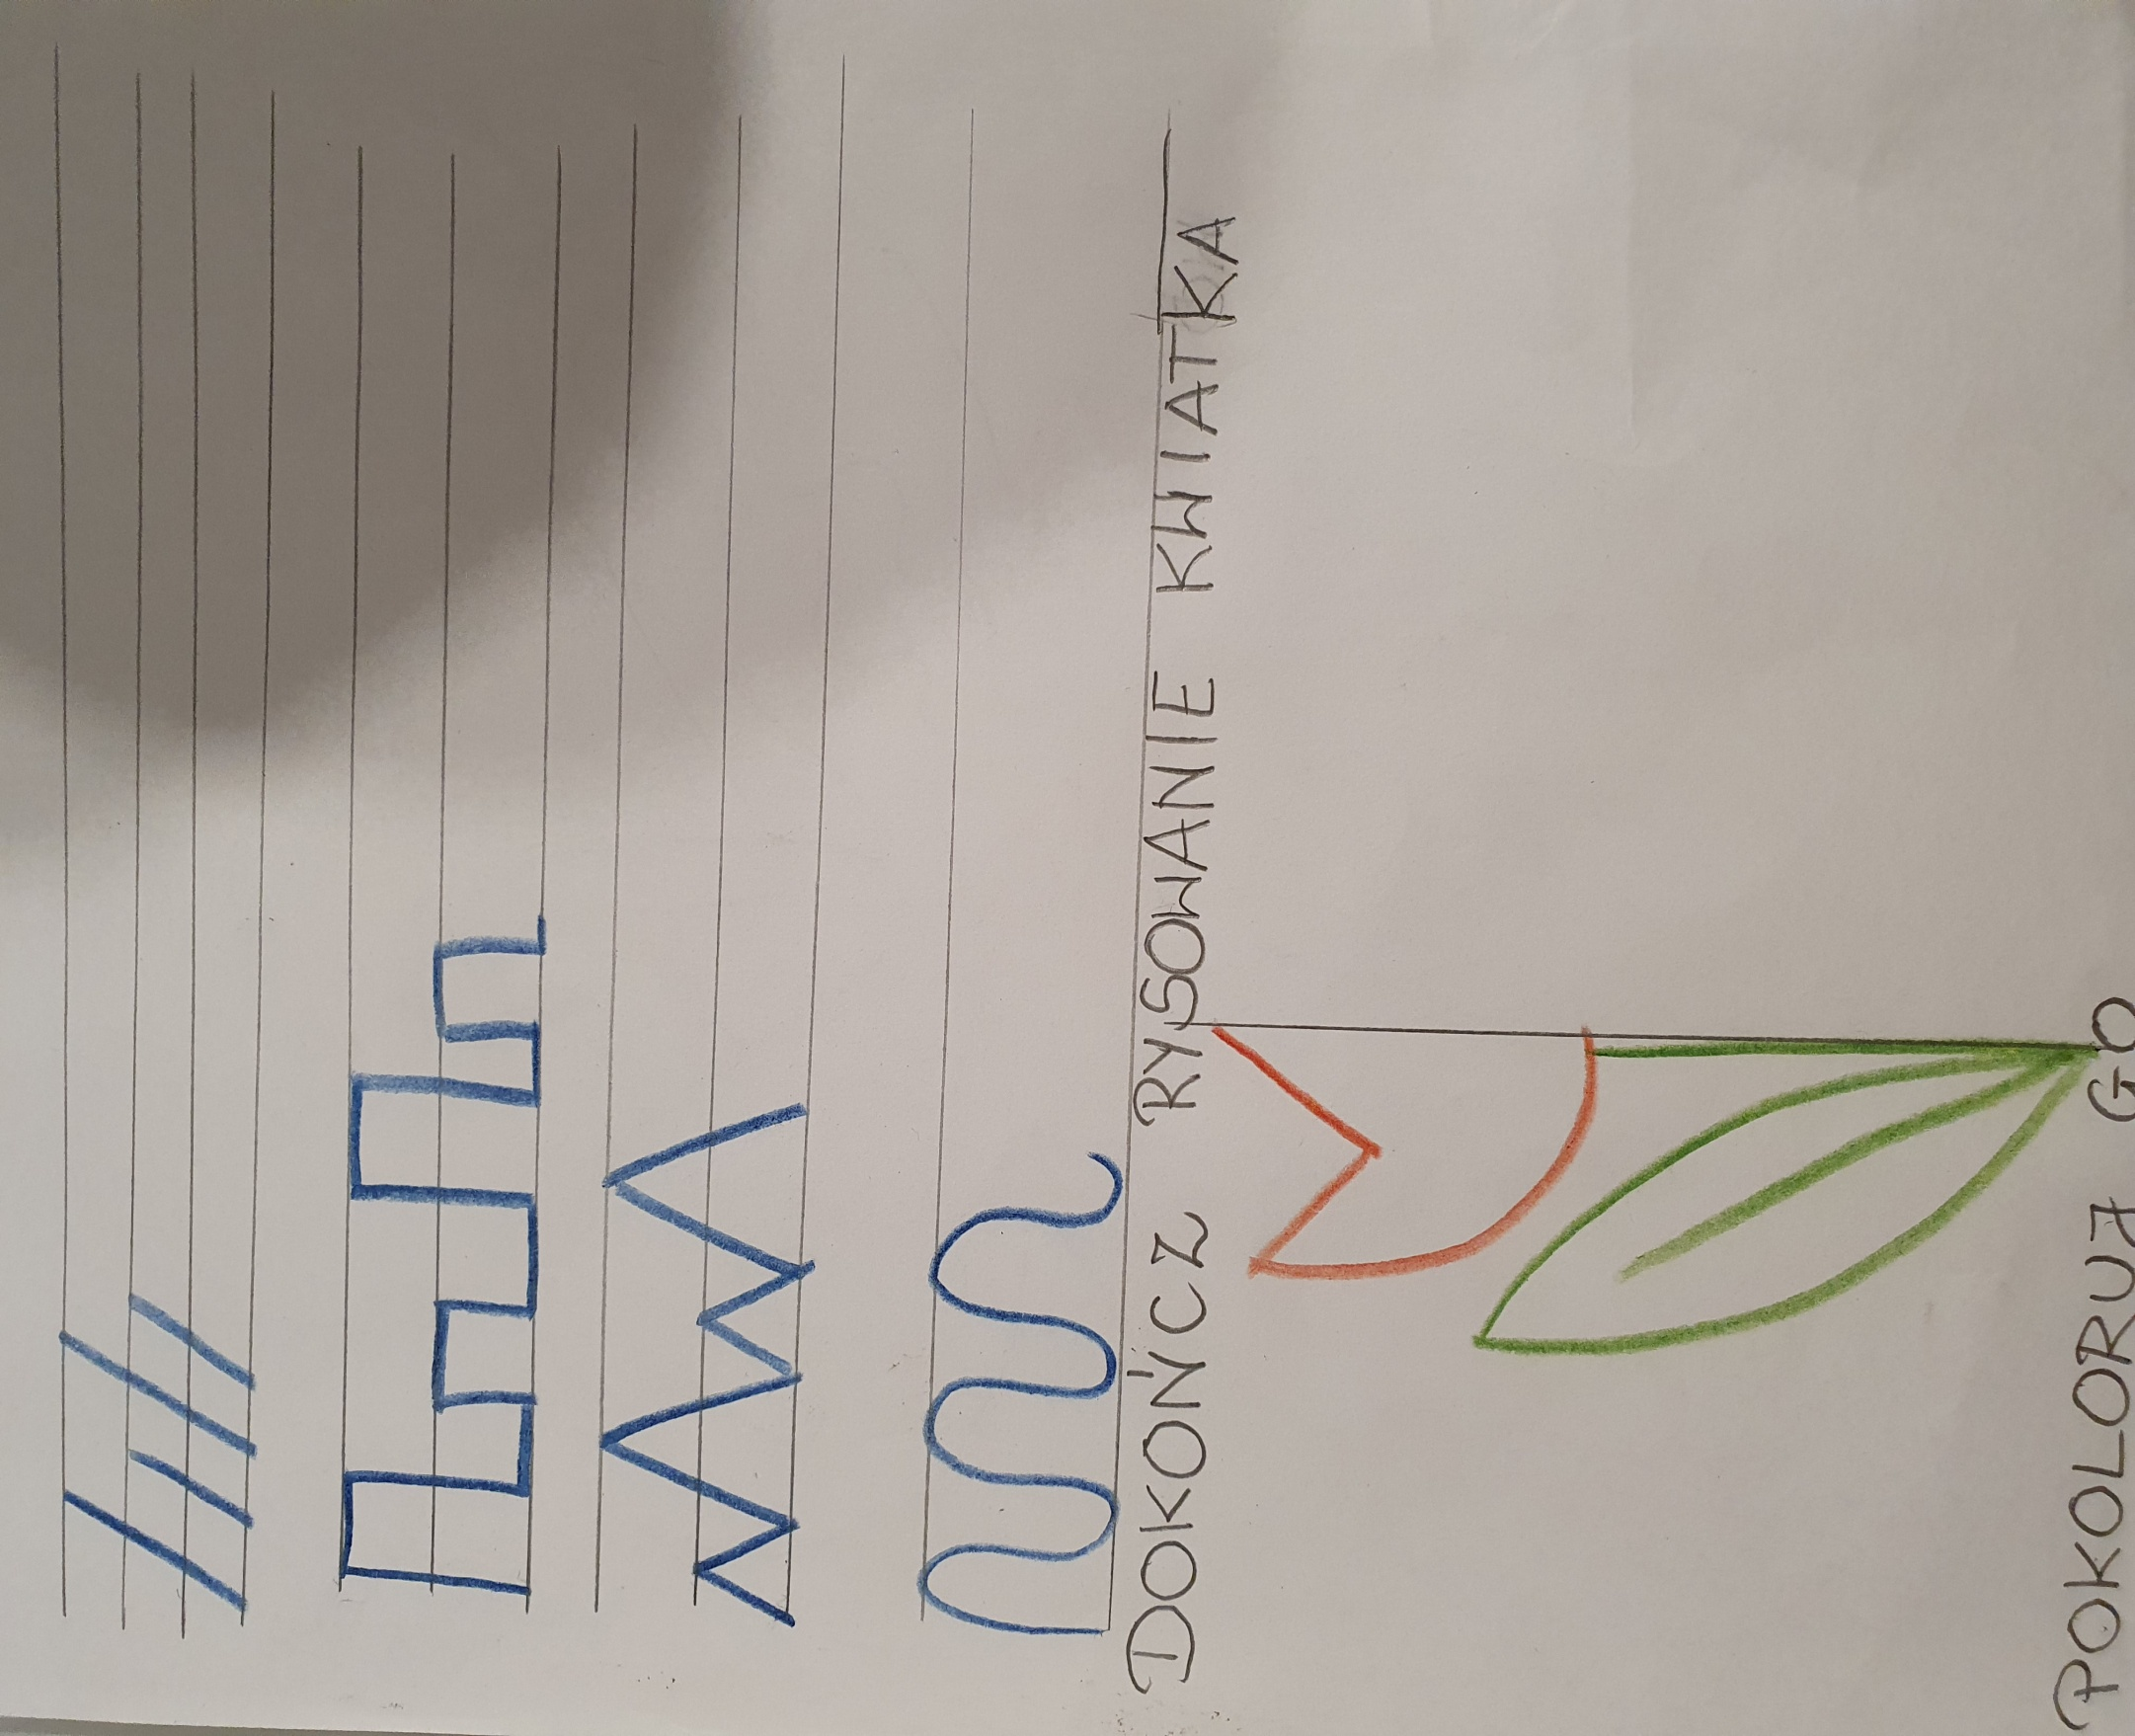 DOKOŃCZ RYSOWANIE KWIATKA
POKOLORUJ GO